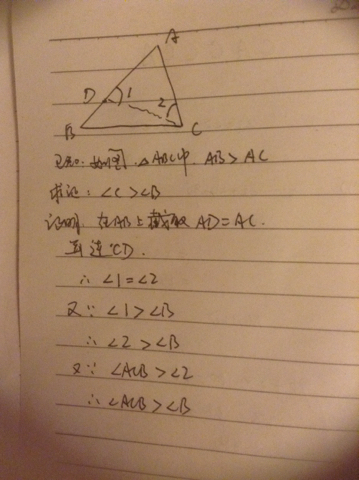 A
D 1 2
B C
已知：如图，△ABC中，AB＞AC
求证：∠C＞∠B
证明：在AB上截取AD＝AC.
连CD.
∴ ∠1＝∠2
又∵ ∠1＞∠B
∴ ∠2＞∠B
又∵ ∠ACB＞∠2
∴ ∠ACB＞∠B